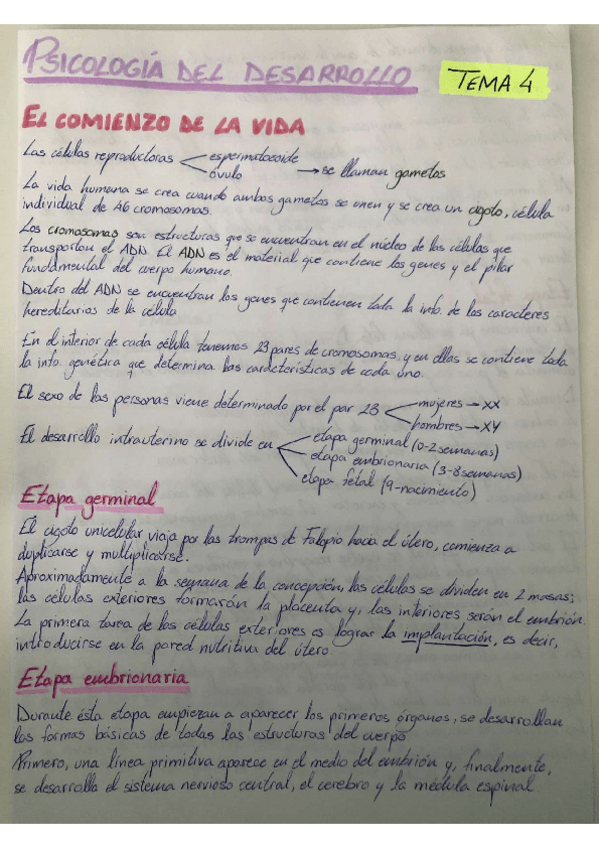 PSICOLOGÍA DEL DESARROLLO TEMA 4
EL COMIENZO DE LA VIDA
Las células reproductoras espermatozoide
óvulo → se llaman gametos
La vida humana se crea cuando ambos gametos se unen y se crea un cigoto, célula
individual de 46 cromosomas.
Los cromosomas son estructuras que se encuentran en el núcleo de las células que
transportan el ADN. El ADN es el material que contiene los genes y el pilar
fundamental del cuerpo humano.
Dentro del ADN se encuentran los genes que contienen toda la info. de los caracteres
hereditarios de la célula
En el interior de cada célula tenemos 23 pares de cromosomas, y en ellas se contiene toda
la info. genética que determina las características de cada uno.
El sexo de las personas viene determinado por el par 23 mujeres → XX
hombres → XY
El desarrollo intrauterino se divide en etapa germinal (0-2 semanas)
etapa embrionaria (3-8 semanas)
etapa fetal (9-nacimiento)
Etapa germinal
El cigoto unicelular viaja por las trompas de Falopio hacia el útero, comienza a
duplicarse y multiplicarse.
Aproximadamente a la semana de la concepción, las células se dividen en 2 masas:
las células exteriores formarán la placenta y, las interiores serán el embrión.
La primera tarea de las células exteriores es lograr la implantación, es decir,
introducirse en la pared nutritiva del útero
Etapa embrionaria
Durante ésta etapa empiezan a aparecer los primeros órganos, se desarrollan
las formas básicas de todas las estructuras del cuerpo
Primero, una línea primitiva aparece en el medio del embrión y, finalmente,
se desarrolla el sistema nervioso central, el cerebro y la médula espinal